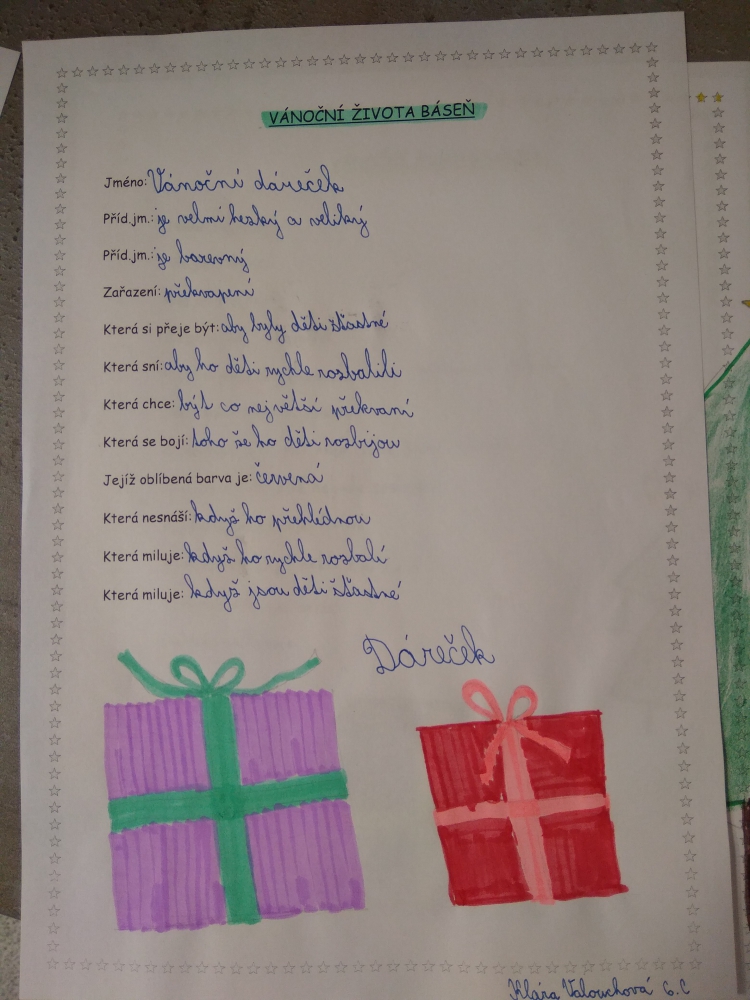 VÁNOČNÍ ŽIVOTA BÁSEŇ
Jméno: Vánoční dáreček
Příd.jm.: je velmi hezký a veliký
Příd.jm.: je barevný
Zařazení: překvapení
Která si přeje být: aby byly děti šťastné
Která sní: aby ho děti rychle rozbalili
Která chce: být co největší překvaní
Která se bojí: toho že ho děti rozbijou
Jejíž oblíbená barva je: červená
Která nesnáší: když ho přehlédnou
Která miluje: když ho rychle rozbalí
Která miluje: když jsou děti šťastné
Dáreček
Klára Valouchová 6.C